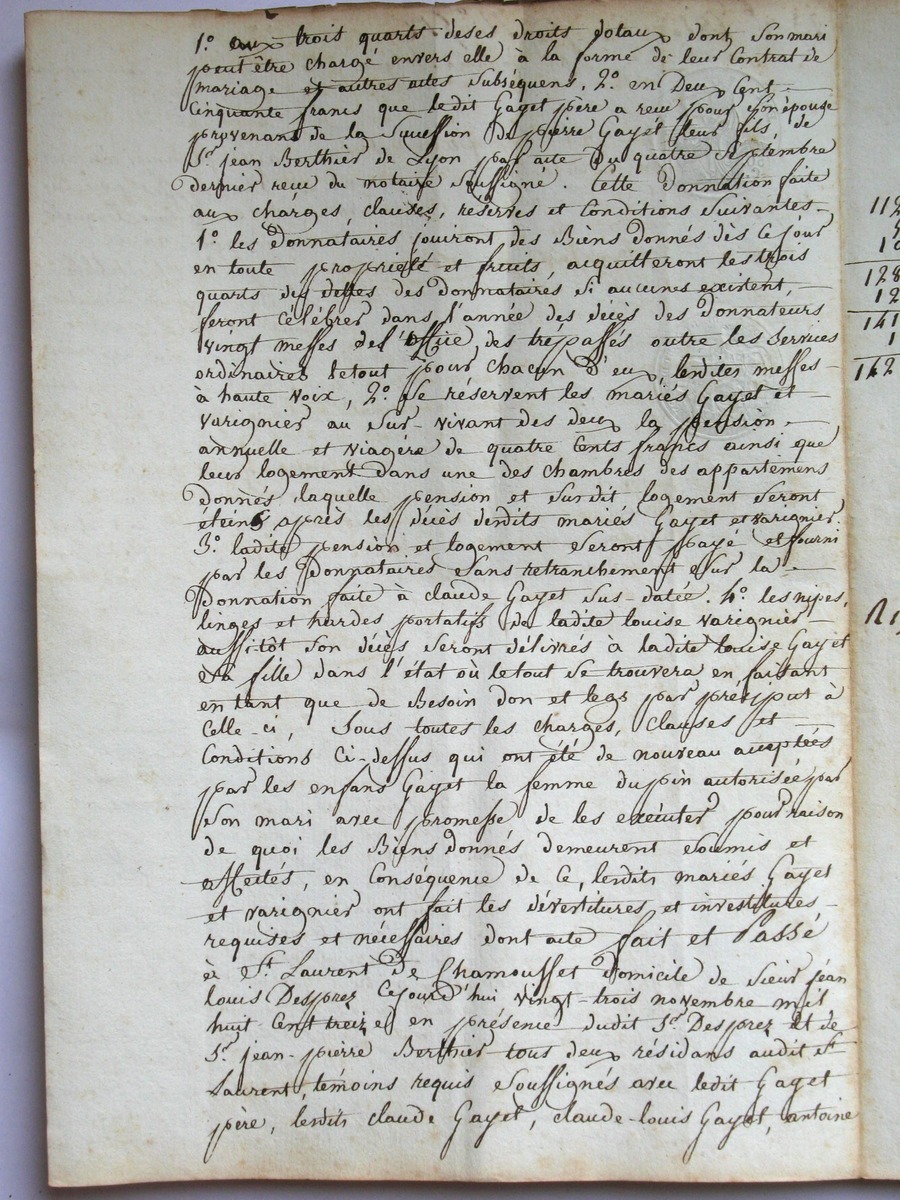 1.° aux trois quarts deses droits dotaux dont Sonmari
peut être chargé envers elle à la forme de leur Contrat de
mariage et autres actes Subséquens, 2.° en Deux Cent
Cinquante francs que ledit Gayet père a recu pour Son épouse
provenant de la Succession de pierre Gayet leur fils, de
S.r jean Berthier de Lyon par acte du quatre Septembre
dernier recu du notaire Soussigné. Cette Donnation faite
aux chârges, clauses, réserves et Conditions Suivantes
1.° les Donnataires jouiront des Biens donnés dès Ce jour
en toute propriété et fruits, acquitteront les trois
quarts des dettes des Donnataires Si aucunes existent,
feront Célébrer dans l'année des décès des Donnateurs
vingt messes de l'office des trépassés outre les Services
ordinaires letout pour chacun d'eux, lesdites messes
à haute voix, 2.° Se réservent les mariés Gayet et
varignier au Sur-vivant des deux la pension
annuelle et viagère de quatre Cents francs ainsi que
leur logement dans une des chambres des appartemens
donnés, laquelle pension et Susdit logement Seront
éteins après les décès desdits mariés Gayet et varignier.
3.° ladite pension et logement Seront payé et fourni
par les Donnataires Sans retranchement Sur la
Donnation faite à claude Gayet Sus-datée. 4.° les nipes,
linges et hardes portatifs de ladite louise varignier
aussitôt Son décès Seront délivrés à ladite louise Gayet
Sa fille dans l'état où letout Se trouvera en faisant
en tant que de Besoin don et legs par préciput à
Celle-ci, Sous toutes les charges, Clauses et
Conditions Ci-dessus qui ont été de nouveau acceptées
par les enfans Gayet la femme dupin autorisée par
Son mari avec promesse de les exécuter pour raison
de quoi les Biens donnés demeurent Soumis et
affectés, en Conséquence de Ce, lesdits mariés Gayet
et varignier ont fait les dévertitures et investitures
requises et nécessaires dont acte fait et Passé
à S.t Laurent De Chamousset domicile de Sieur jean
louis Desprez Cejourd'hui vingt-trois novembre mil
huit Cent treize en présence dudit S.r Desprez Et de
S.r jean-pierre Berthier tous deux résidans audit S.t
Laurent, témoins requis Soussignés avec ledit Gayet
père, lesdits claude Gayet, claude-louis Gayet, antoine
128
12
141
1
162